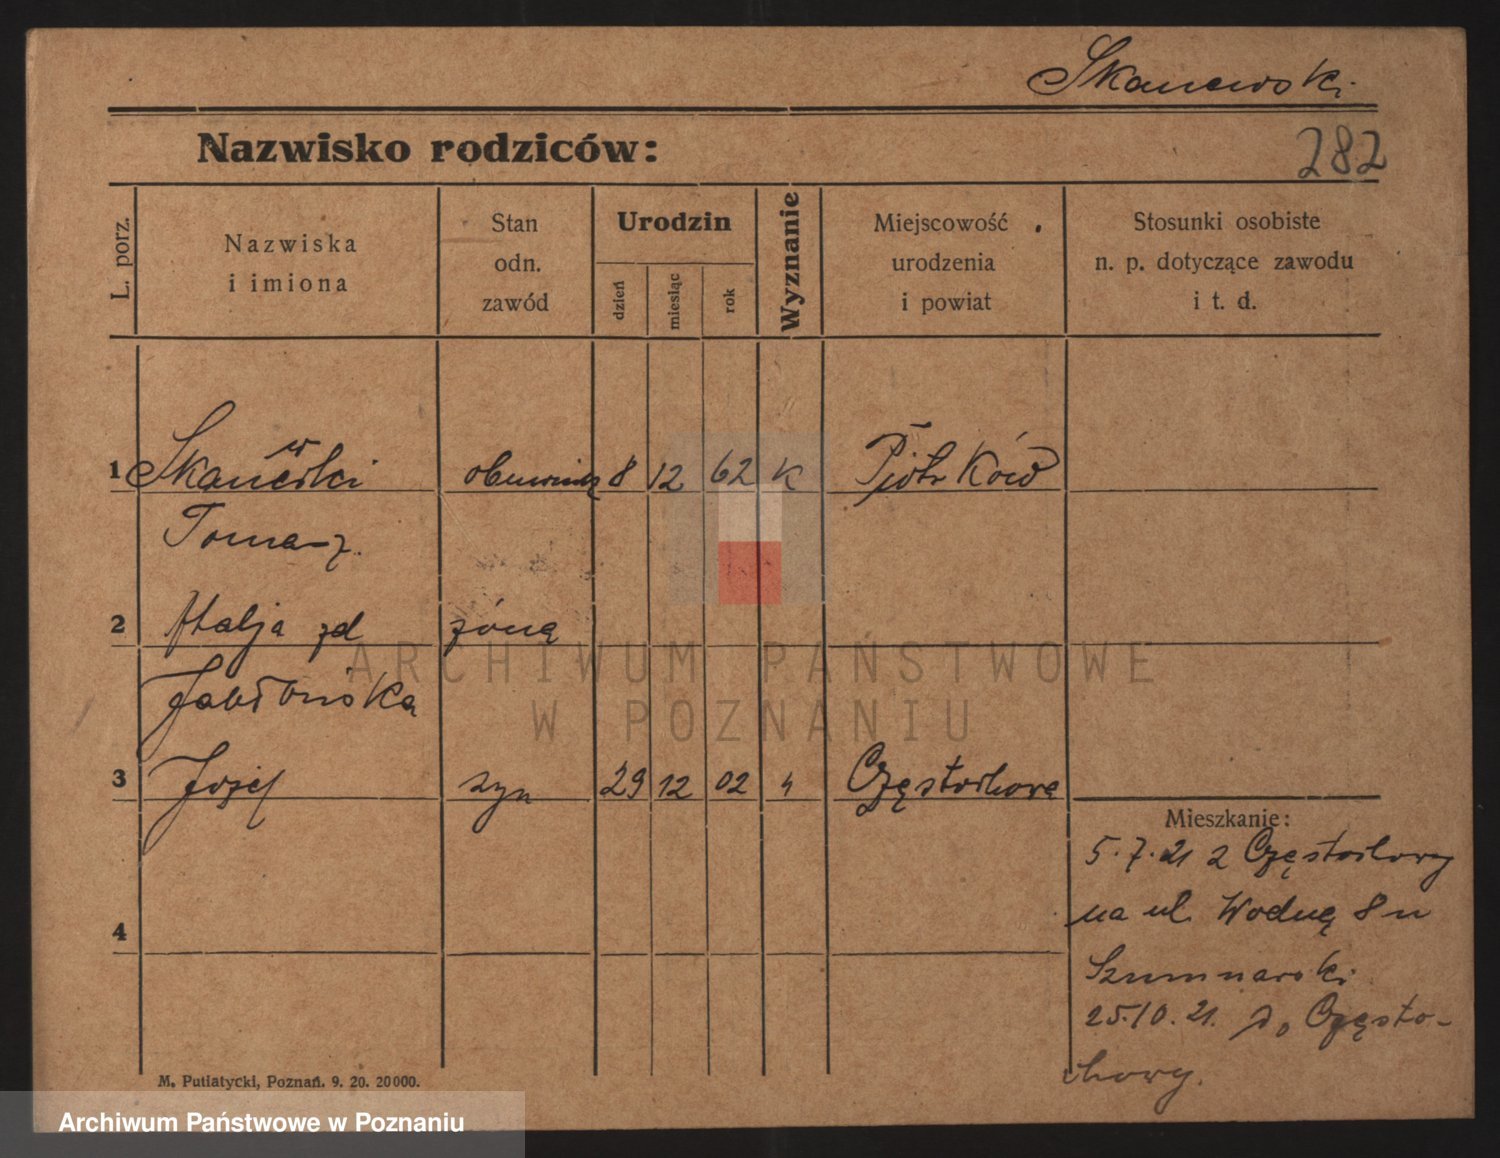 Skanewski
Nazwisko rodziców:
282
L. porz.
Nazwiska
i imiona
Stan
odn.
zawód
Urodzin
dzień
miesiąc
rok
Wyznanie
Miejscowość
urodzenia
i powiat
Stosunki osobiste
n. p. dotyczące zawodu
i t. d.
1 Skanewski 8 12 62 K Piotrków
Tomasz
2 zd żona
Jabłońska
3 Józef syn 29 12 02 Częstochowa
Mieszkanie:
5.7.21 z Częstochowy
na ul. Wodną 8 u
25.10.21. do Często-
chowy.
4
M. Putiatycki, Poznań. 9. 20. 20000.
ARCHIWUM PAŃSTWOWE
W POZNANIU
Archiwum Państwowe w Poznaniu